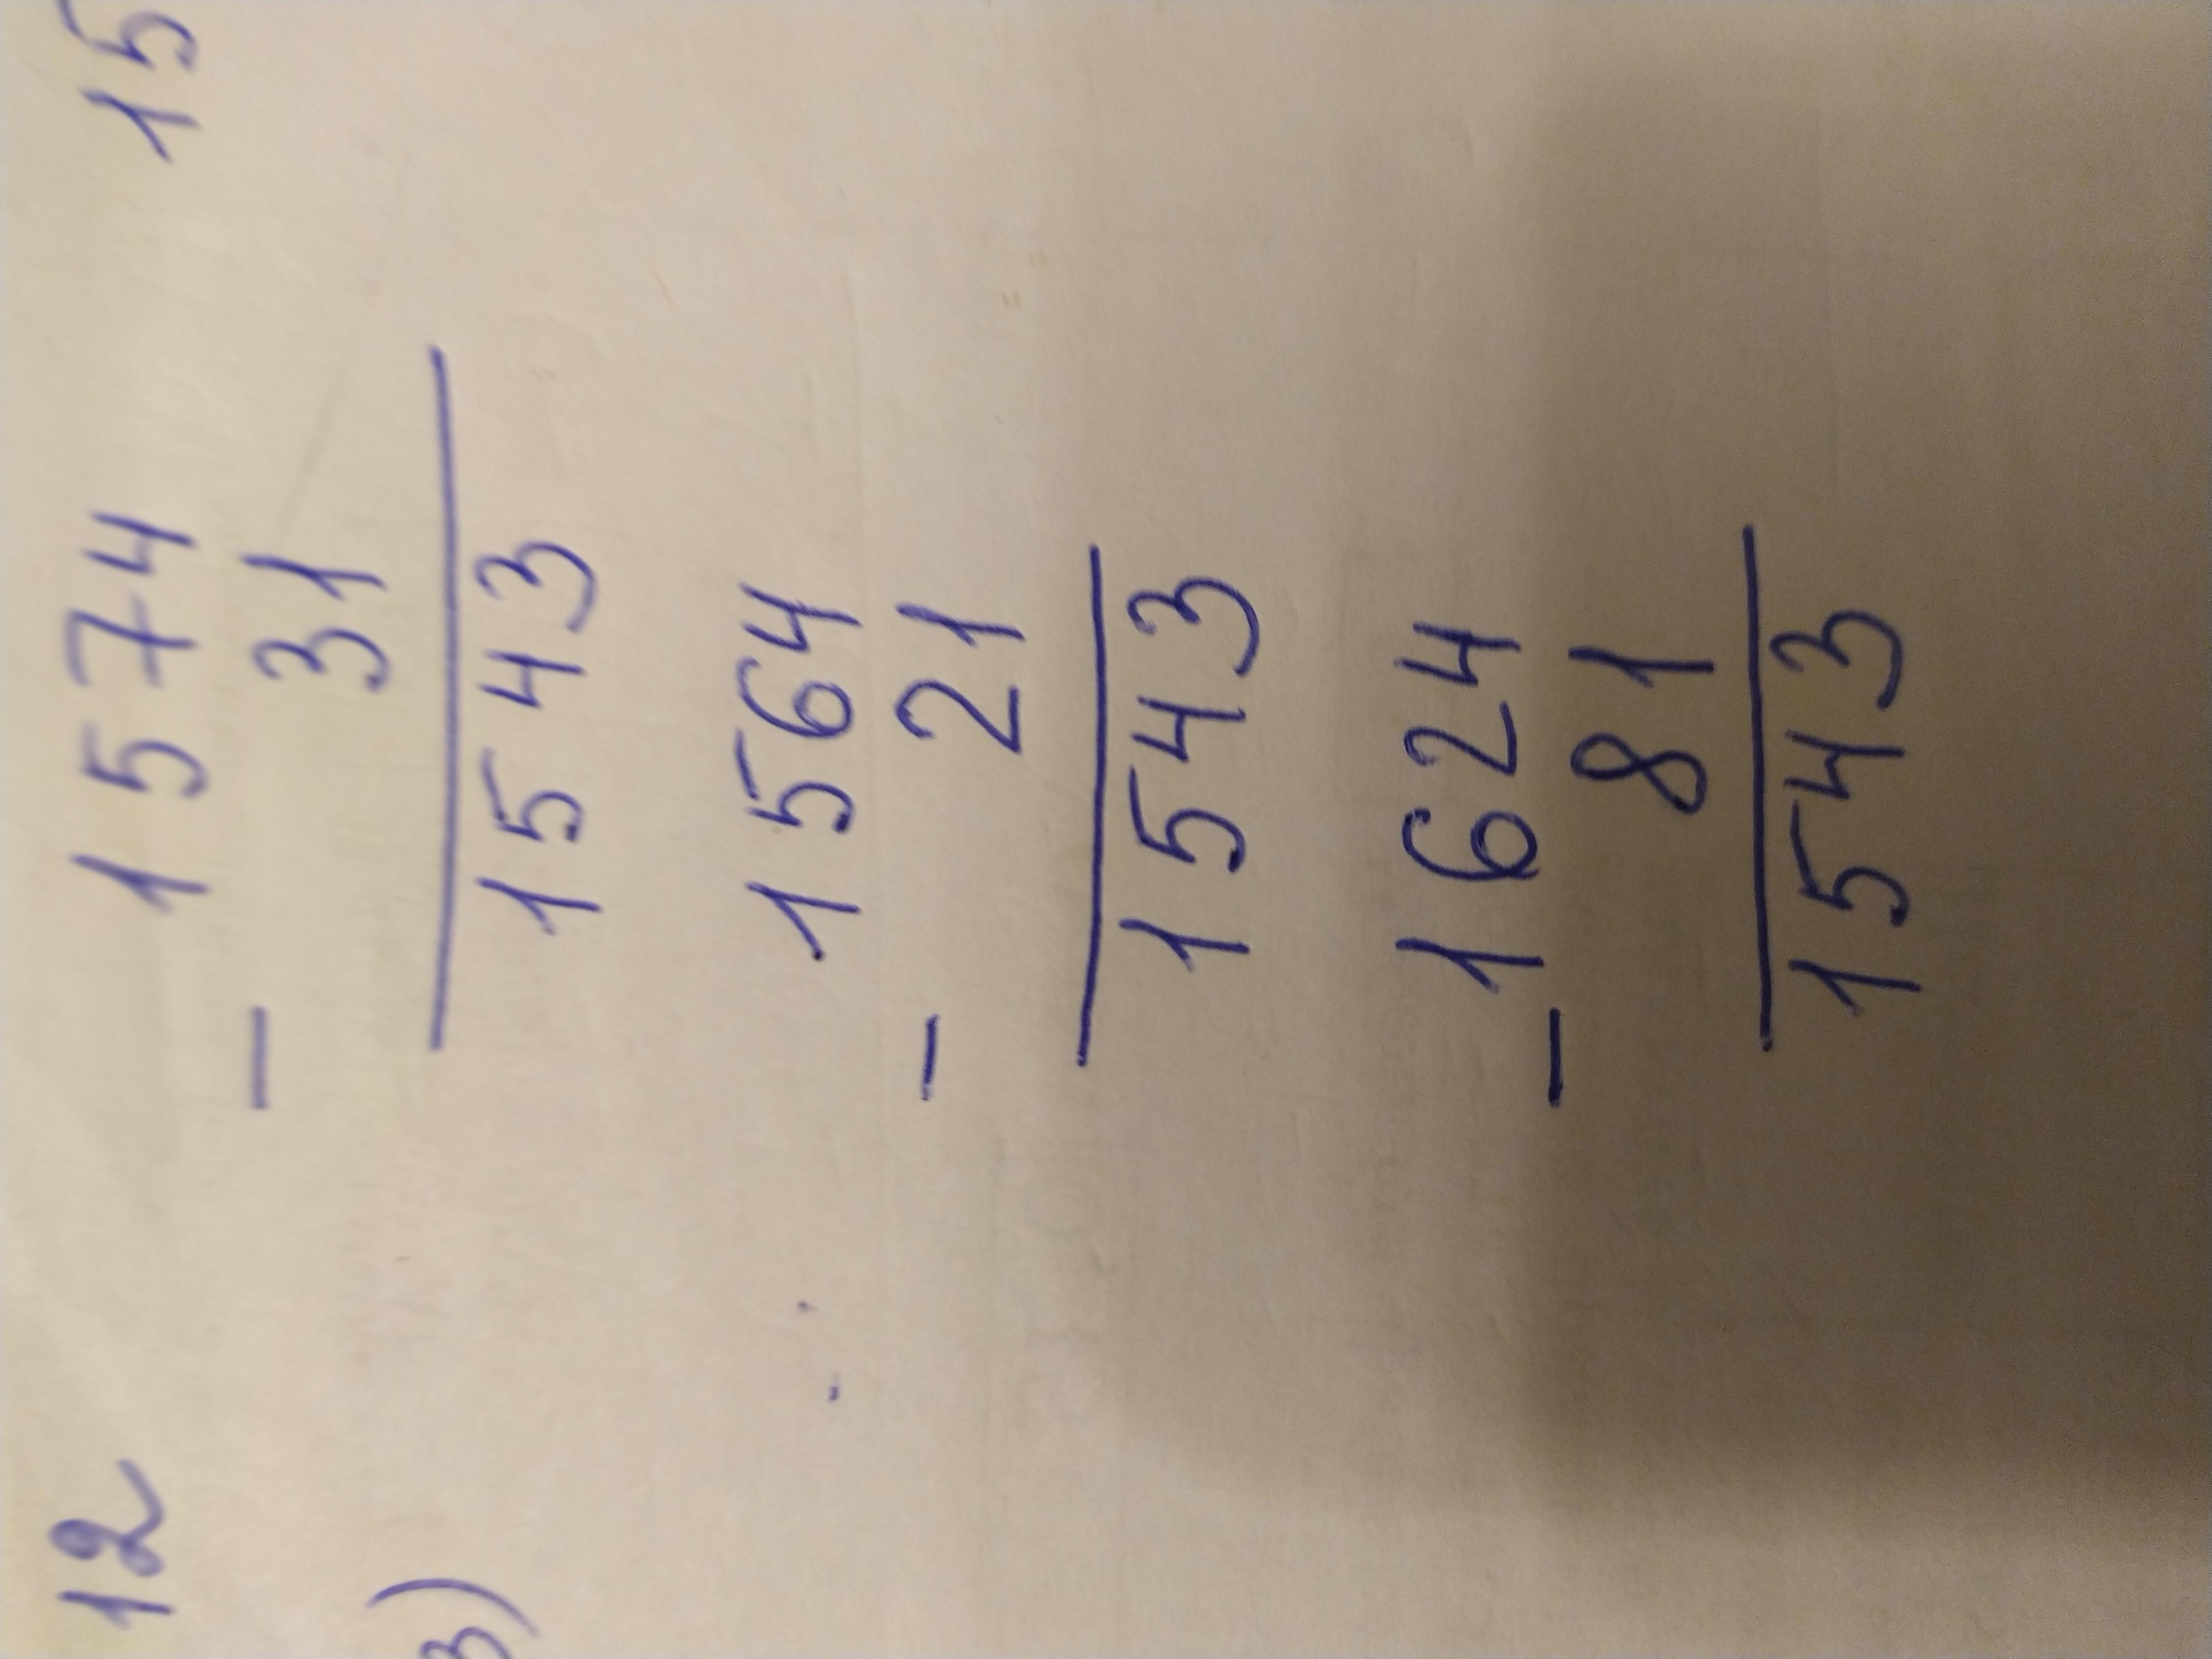 12 1574 15
3) – 31
1543
1564
– 21
1543
1624
– 81
1543